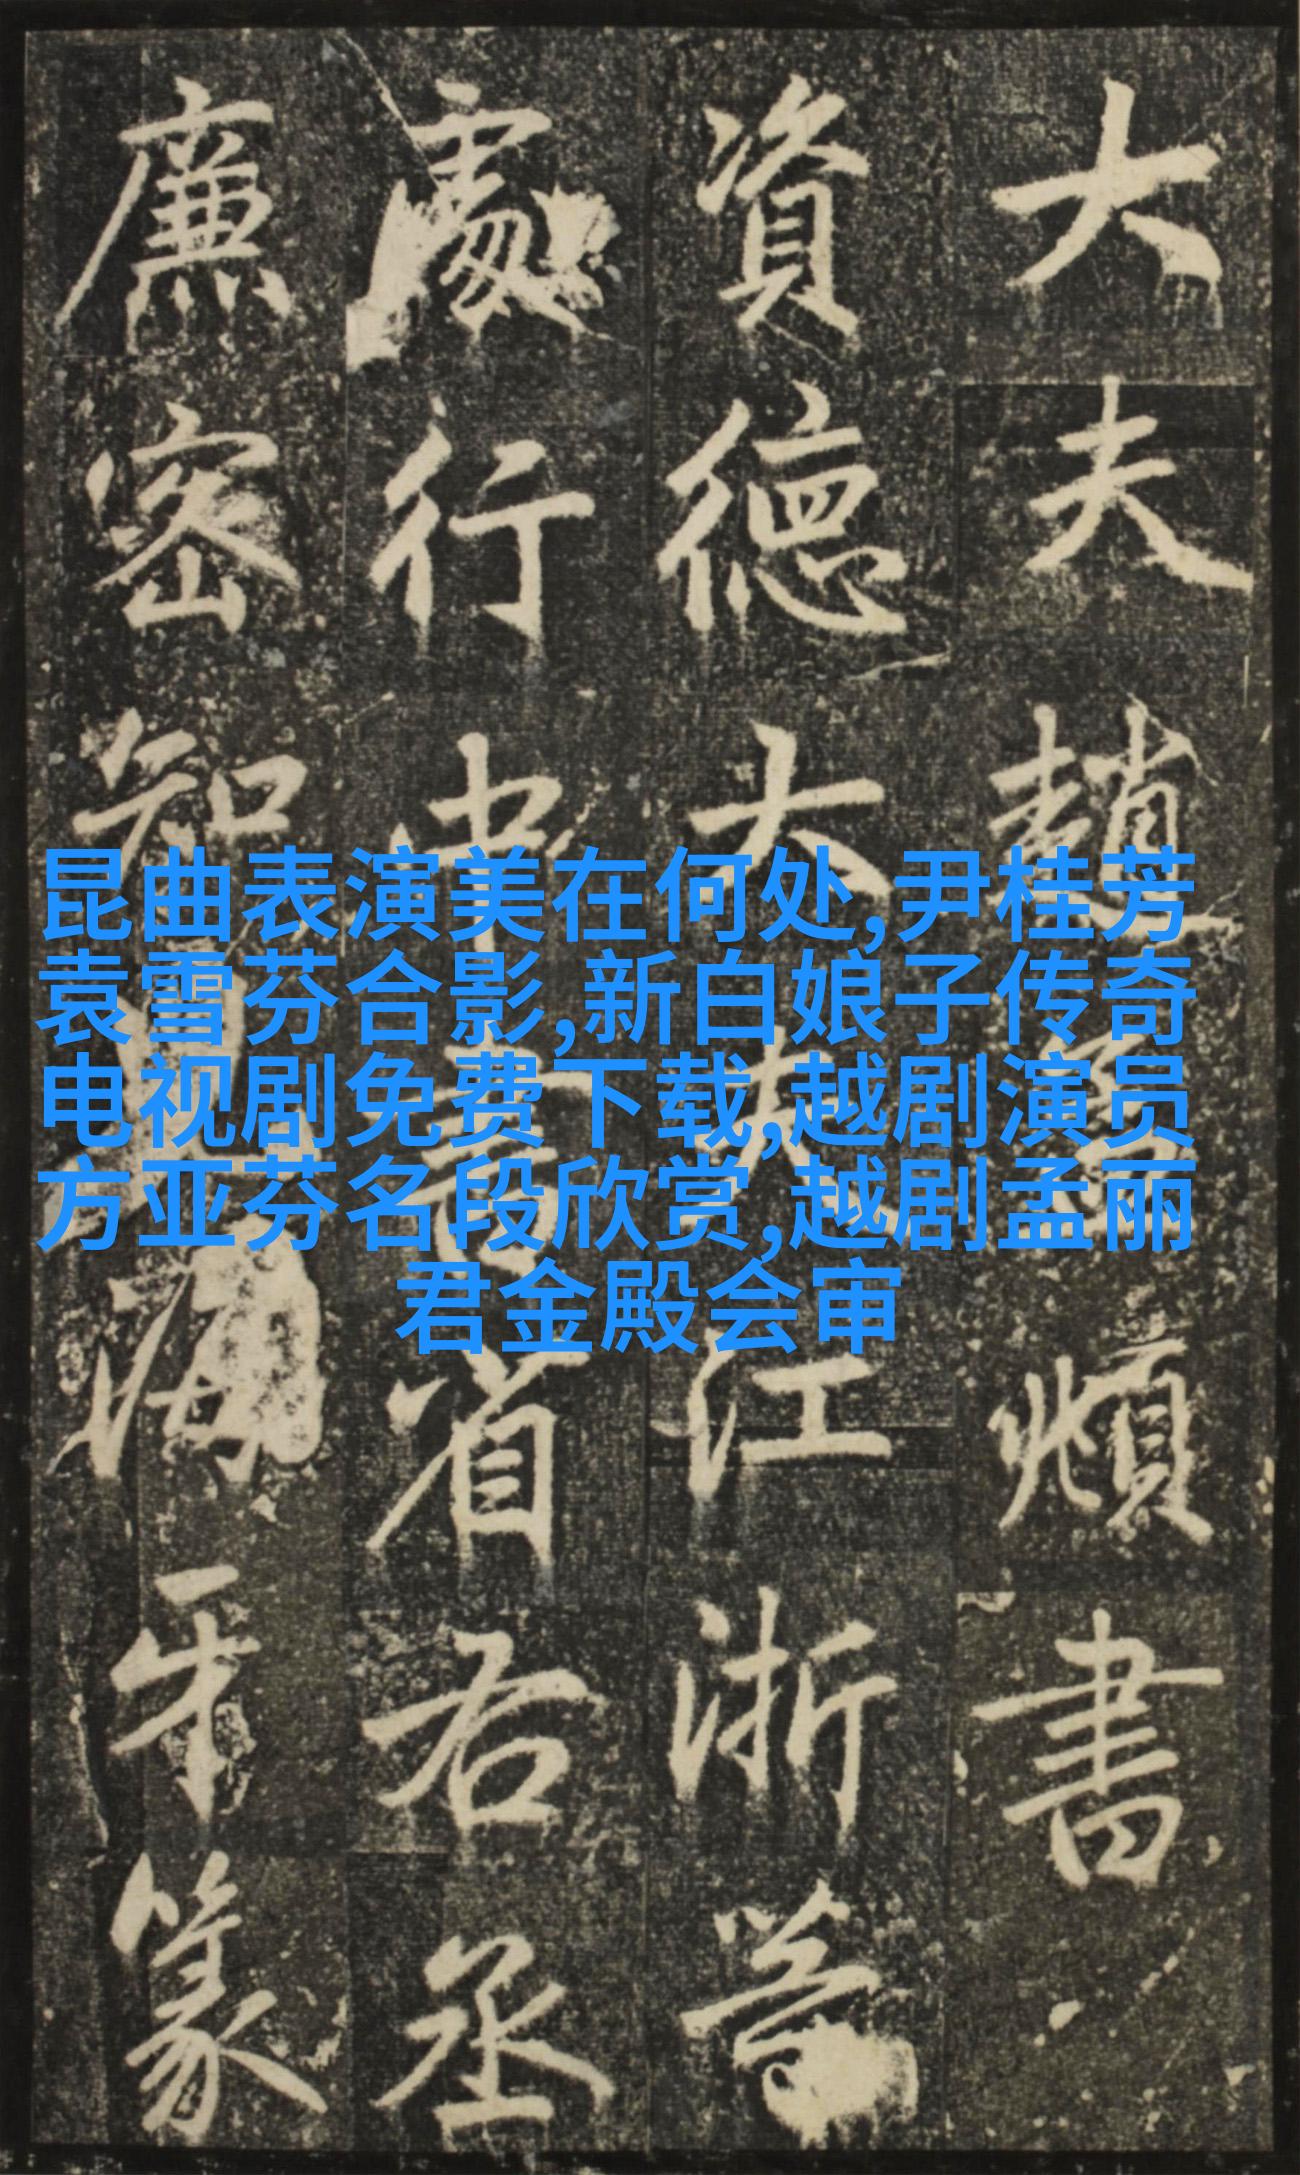 昆曲表演美在何处,尹桂芳
袁雪芬合影,新白娘子传奇
电视剧免费下载,越剧演员
方亚芬名段欣赏,越剧孟丽
君金殿会审
大夫趙孟頫書
資德大夫江浙等
處行中書省右丞
廉密知海牙篆